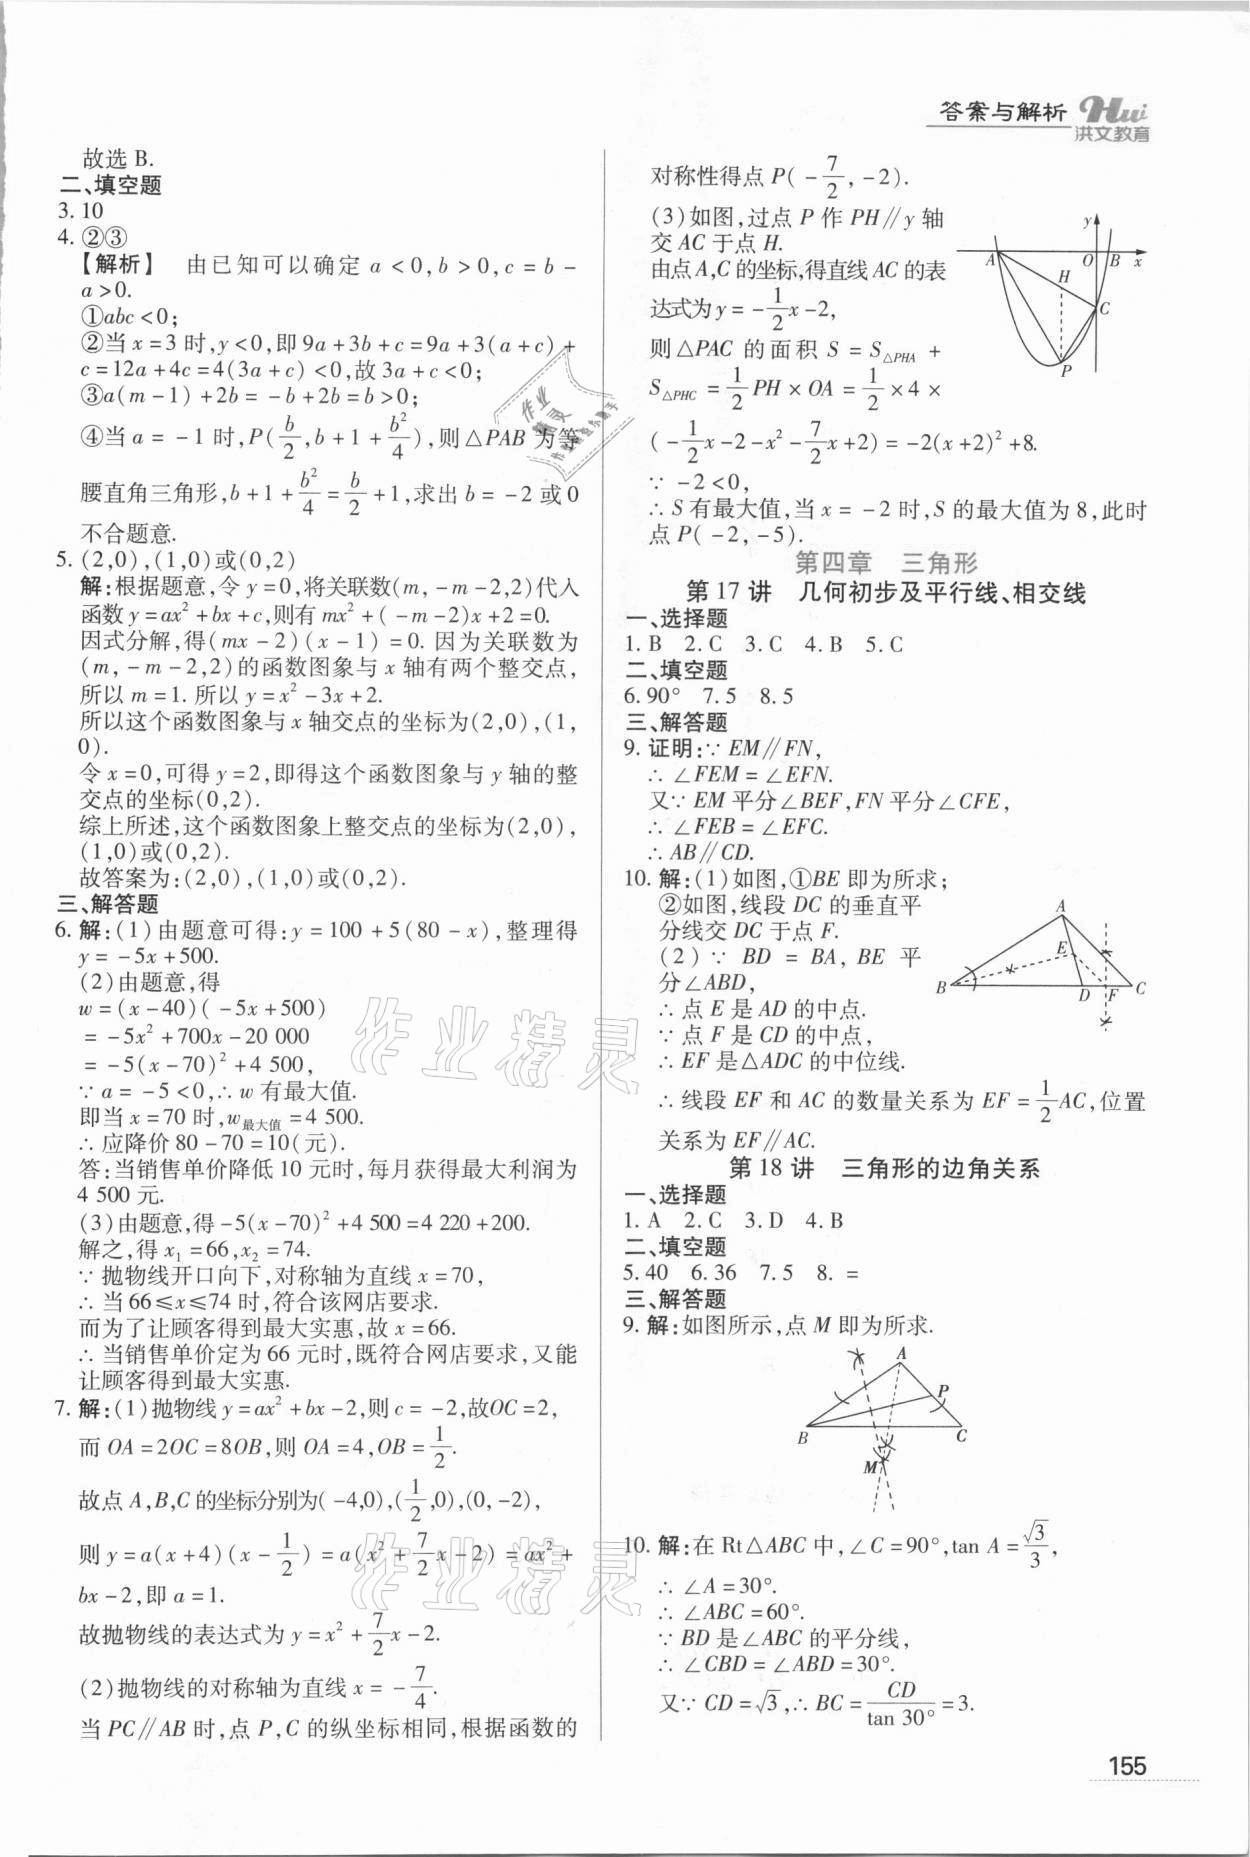 答案与解析 Hui
洪文教育
故选 B.
二、填空题
3. 10
4. ②③
【解析】 由已知可以确定 a<0,b>0,c=b-
a>0.
①abc<0;
②当 x=3 时,y<0,即 9a+3b+c=9a+3(a+c)+
c=12a+4c=4(3a+c)<0,故 3a+c<0;
③a(m-1)+2b=-b+2b=b>0;
④当 a=-1 时,P(b/2,b+1+b²/4),则△PAB 为等
腰直角三角形,b+1+b²/4=b/2+1,求出 b=-2 或 0
不合题意.
5. (2,0),(1,0)或(0,2)
解:根据题意,令 y=0,将关联数(m,-m-2,2)代入
函数 y=ax²+bx+c,则有 mx²+(-m-2)x+2=0.
因式分解,得(mx-2)(x-1)=0. 因为关联数为
(m,-m-2,2)的函数图象与 x 轴有两个整交点,
所以 m=1. 所以 y=x²-3x+2.
所以这个函数图象与 x 轴交点的坐标为(2,0),(1,
0).
令 x=0,可得 y=2,即得这个函数图象与 y 轴的整
交点的坐标(0,2).
综上所述,这个函数图象上整交点的坐标为(2,0),
(1,0)或(0,2).
故答案为:(2,0),(1,0)或(0,2).
三、解答题
6. 解:(1)由题意可得:y=100+5(80-x),整理得
y=-5x+500.
(2)由题意,得
w=(x-40)(-5x+500)
=-5x²+700x-20 000
=-5(x-70)²+4 500,
∵a=-5<0,∴w 有最大值.
即当 x=70 时,w最大值=4 500.
∴应降价 80-70=10(元).
答:当销售单价降低 10 元时,每月获得最大利润为
4 500 元.
(3)由题意,得-5(x-70)²+4 500=4 220+200.
解之,得 x₁=66,x₂=74.
∵抛物线开口向下,对称轴为直线 x=70,
∴当 66≤x≤74 时,符合该网店要求.
而为了让顾客得到最大实惠,故 x=66.
∴当销售单价定为 66 元时,既符合网店要求,又能
让顾客得到最大实惠.
7. 解:(1)抛物线 y=ax²+bx-2,则 c=-2,故OC=2,
而 OA=2OC=8OB,则 OA=4,OB=1/2.
故点 A,B,C 的坐标分别为(-4,0),(1/2,0),(0,-2),
则 y=a(x+4)(x-1/2)=a(x²+7/2x-2)=ax²+
bx-2,即 a=1.
故抛物线的表达式为 y=x²+7/2x-2.
(2)抛物线的对称轴为直线 x=-7/4.
当 PC∥AB 时,点 P,C 的纵坐标相同,根据函数的
对称性得点 P(-7/2,-2).
(3)如图,过点 P 作 PH∥y 轴
交 AC 于点 H.
由点 A,C 的坐标,得直线 AC 的表
达式为 y=-1/2x-2,
则△PAC 的面积 S=S△PHA+
S△PHC=1/2PH×OA=1/2×4×
(-1/2x-2-x²-7/2x+2)=-2(x+2)²+8.
∵-2<0,
∴S 有最大值,当 x=-2 时,S 的最大值为 8,此时
点 P(-2,-5).
y
A
O
B
x
H
C
P
第四章 三角形
第 17 讲 几何初步及平行线、相交线
一、选择题
1. B 2. C 3. C 4. B 5. C
二、填空题
6. 90° 7. 5 8. 5
三、解答题
9. 证明:∵EM∥FN,
∴∠FEM=∠EFN.
又∵EM 平分∠BEF,FN 平分∠CFE,
∴∠FEB=∠EFC.
∴AB∥CD.
10. 解:(1)如图,①BE 即为所求;
②如图,线段 DC 的垂直平
分线交 DC 于点 F.
(2)∵BD=BA,BE 平
分∠ABD,
∴点 E 是 AD 的中点.
∵点 F 是 CD 的中点,
∴EF 是△ADC 的中位线.
∴线段 EF 和 AC 的数量关系为 EF=1/2AC,位置
关系为 EF∥AC.
A
E
B
D
F
C
第 18 讲 三角形的边角关系
一、选择题
1. A 2. C 3. D 4. B
二、填空题
5. 40 6. 36 7. 5 8. =
三、解答题
9. 解:如图所示,点 M 即为所求.
A
P
B
C
M
10. 解:在 Rt△ABC 中,∠C=90°,tan A=√3/3,
∴∠A=30°.
∴∠ABC=60°.
∵BD 是∠ABC 的平分线,
∴∠CBD=∠ABD=30°.
又∵CD=√3,∴BC=CD/tan 30°=3.
155
作业精灵
作业精灵